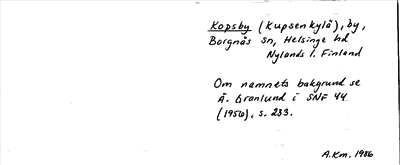 Kopsby (Kupsenkylä), by,
Borgnäs sn, Helsinge hd
Nylands l. Finland
Om namnets bakgrund se
Å. Granlund i SNF 44
(1956), s. 233.
A.Km. 1986